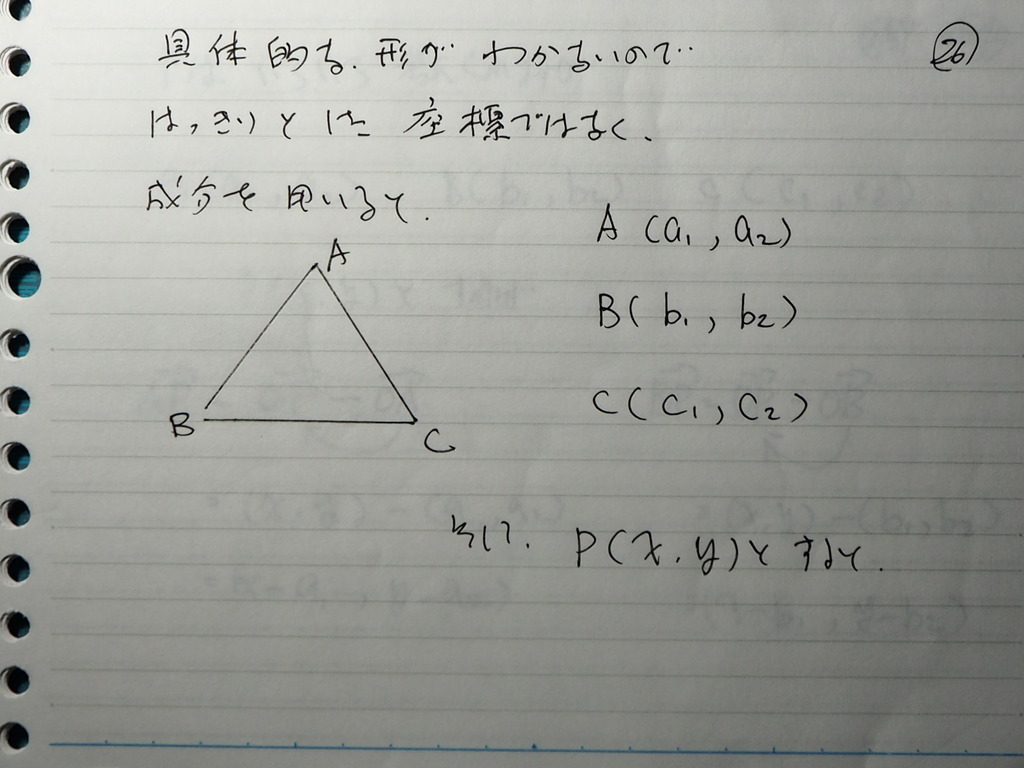 具体的な、形が わからないので
㉖
はっきりとした 座標ではなく、
成分を用いると、
A (a₁, a₂)
A
B( b₁, b₂)
C( C₁, C₂)
B
C
そして、P(x, y)とすると、